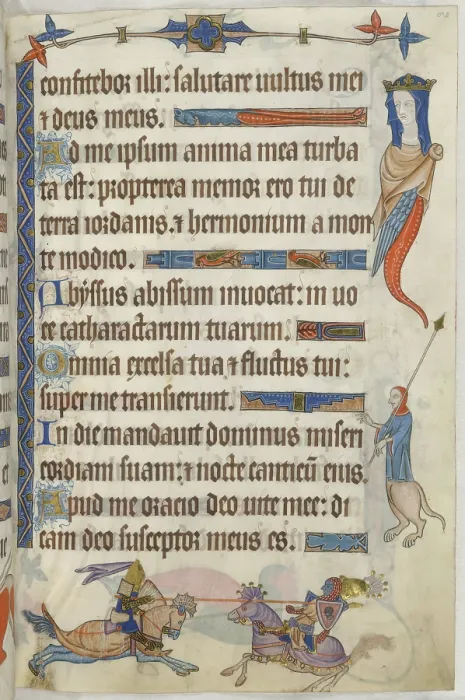 confitebor illi: salutare vultus mei
⁊ deus meus.
Ad me ipsum anima mea turba
ta est: propterea memor ero tui de
terra iordanis. ⁊ hermonium a mon
te modico.
Abyssus abissum inuocat: in uo
ce catharactarum tuarum.
Omnia excelsa tua, ⁊ fluctus tui:
super me transierunt.
In die mandauit dominus miseri
cordiam suam: ⁊ nocte canticū eius.
Apud me oracio deo uite mee: di
cam deo susceptor meus es.